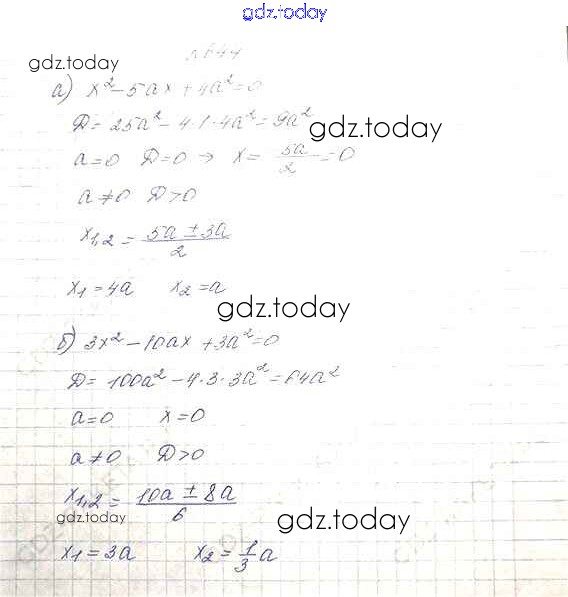 gdz.today
№644
gdz.today
а) x² - 5ax + 4a² = 0
D = 25a² - 4·1·4a² = 9a²
gdz.today
a = 0 D = 0 → x = 5a/2 = 0
a ≠ 0 D > 0
x₁,₂ = (5a ± 3a)/2
x₁ = 4a x₂ = a
gdz.today
б) 3x² - 10ax + 3a² = 0
D = 100a² - 4·3·3a² = 64a²
a = 0 x = 0
a ≠ 0 D > 0
x₁,₂ = (10a ± 8a)/6
gdz.today
gdz.today
x₁ = 3a x₂ = 1/3 a